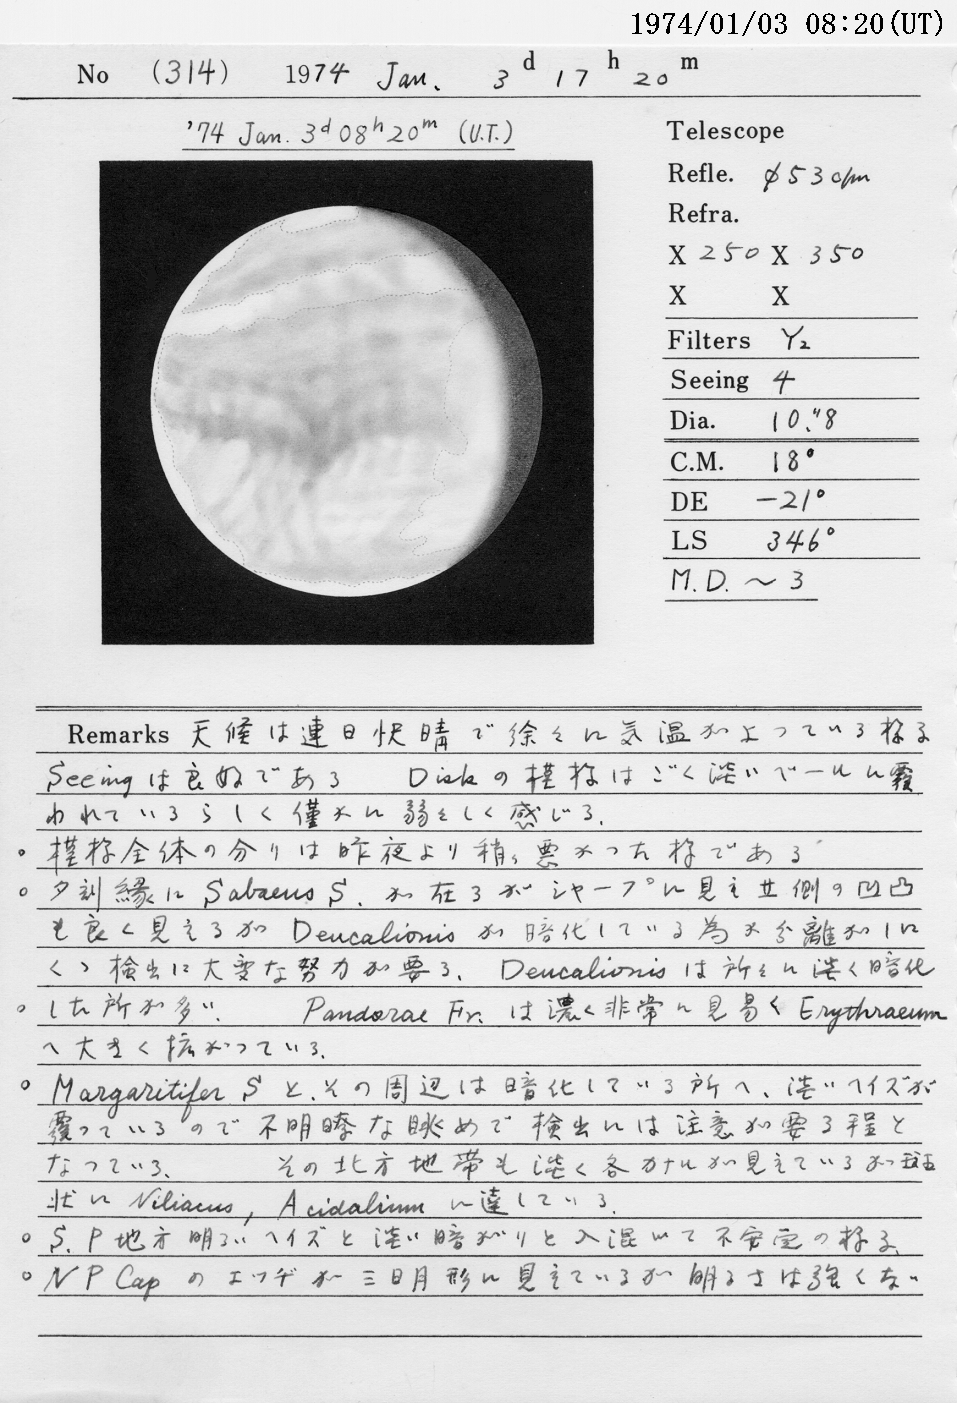 1974/01/03 08:20(UT)
No (314) 1974 Jan. 3d 17h 20m
'74 Jan. 3d 08h 20m (U.T.)
Telescope
Refle. φ530mm
Refra.
X 250 X 350
X X
Filters Y2
Seeing 4
Dia. 10."8
C.M. 18°
DE -21°
LS 346°
M.D. ~ 3
Remarks 天候は連日快晴で徐々に気温が上っている様る
Seeingは良好である Diskの模様はごく淡いベールに覆
われているらしく僅かに弱々しく感じる.
。模様全体の分りは昨夜より稍々悪かった様である
。夕刻縁に Sabaeus S. が在るがシャープに見え北側の凹凸
も良く見えるが Deucalionis が暗化している為か分離がしに
くゝ検出に大変な努力が要る. Deucalionis は所々に淡く暗化
。した所が多い. Pandorae Fr. は濃く非常に見易く Erythraeum
へ大きく拡がっている.
。Margaritifer S と、その周辺は暗化している所へ、淡いヘイズが
覆っているので不明瞭な眺めで検出には注意が要る程と
なっている. その北方地帯も淡く各カナルが見えているが斑
状に Niliacus, Acidalium に達している.
。S.P地方明るいヘイズと淡い暗がりと入混じて不安定の様る.
。N P Cap のエッヂが三日月形に見えているが明るさは強くない